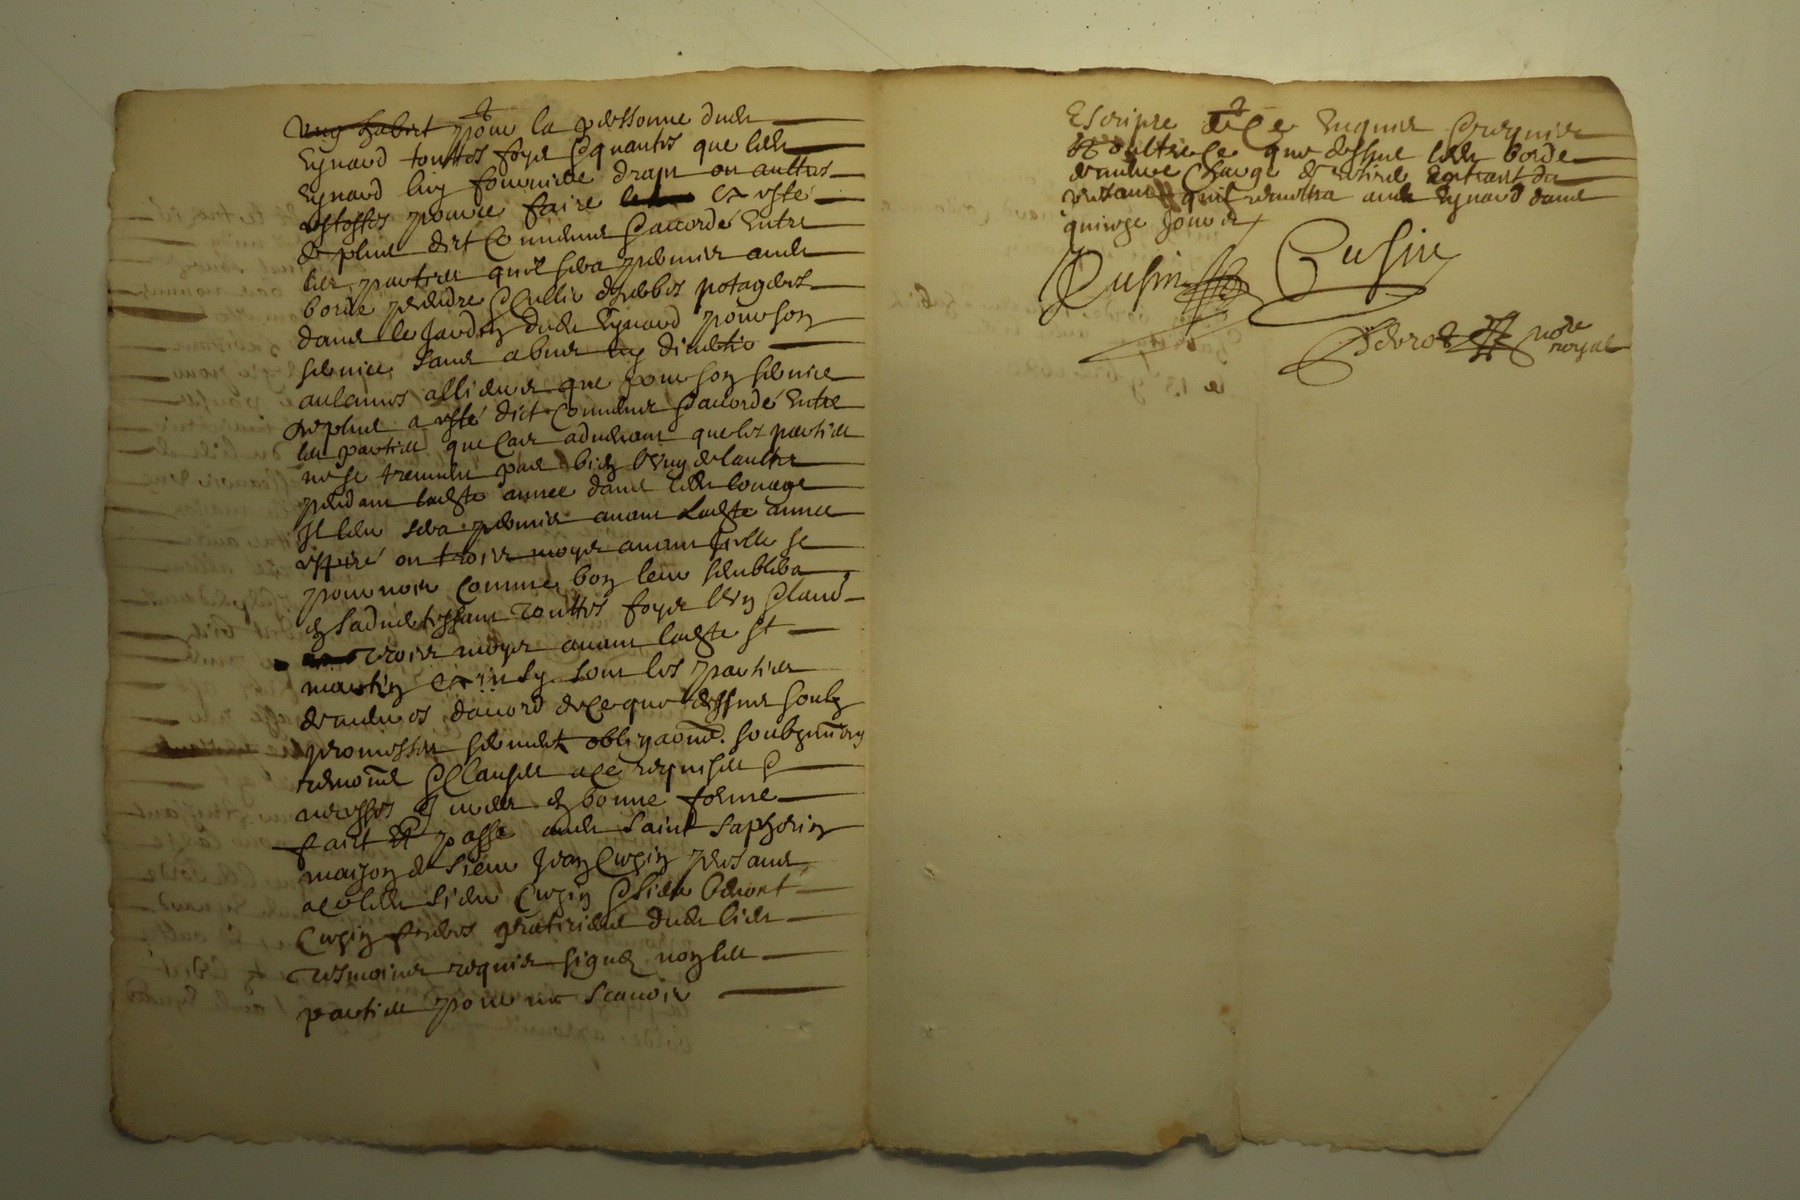 Ung habit pour la personne dudit
Eynard touttes foys & quantes que ledit
Eynard luy fournira drapt ou aultres
estoffes pour ce faire et a esté
de plus dict convenu & accordé entre
les parties quil sera permis audit
borde prendre & cullir dherbes potageres
dans le jardin dudit Eynard pour son
service sans abuser ny divertir
aulcunes allieurs que pour son service
De plus a esté dict convenu & accordé entre
les parties que cas advenant que les parties
ne se treuvent pas bien lung de laultre
pendant ladte année dans ledit louage
Il leur sera permis avant ladte année
expiré ou trois moys avant icelle se
pourvoir comme bon leur semblera
en sadvertissant touttes foys lung & lautre
trois moys avant ladte St
martin et insy sont les parties
demeurés daccord de ce que dessus soubz
promesses serment obligaons soubzmissions
renons & clauses a ce requises &
necesses en icelles en bonne forme
faict et passé audit saint saphorin
maison de sieur Jean Cuzin presans
ace ledit sieur Cuzin & sieur
Cuzin freres praticiens dudit lieu
tesmoins requis signés non les
parties pour ne scavoir
Escripre de ce enquis & requis
Et oultre ce que dessus ledit borde
demeure chargé de
restant quil remettra audit Eynard dans
quinze jours
Cusin Cusin
nore
royal